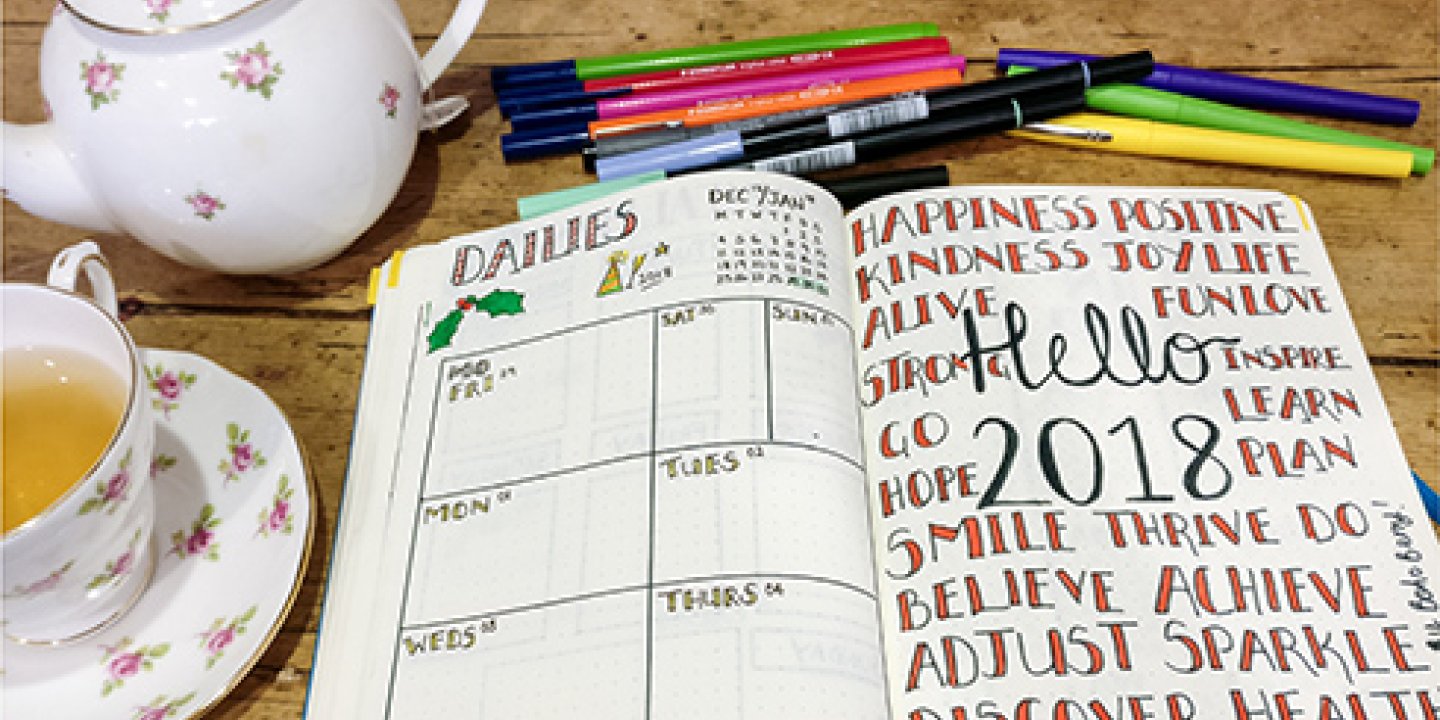 DAILIES
DEC /JAN
M T W T F S S
2018
SAT
SUN
FRI
MON 01
TUES 02
WEDS 03
THURS 04
HAPPINESS POSITIVE
KINDNESS JOY LIFE
ALIVE FUN LOVE
STRONG Hello INSPIRE
LEARN
GO 2018
HOPE PLAN
SMILE THRIVE DO
BELIEVE ACHIEVE
ADJUST SPARKLE
DISCOVER HEALTH
STAEDTLER